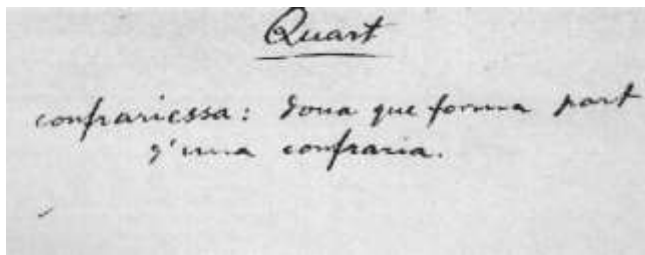 Quart
confrariessa: dona que forma part
d'una confraria.